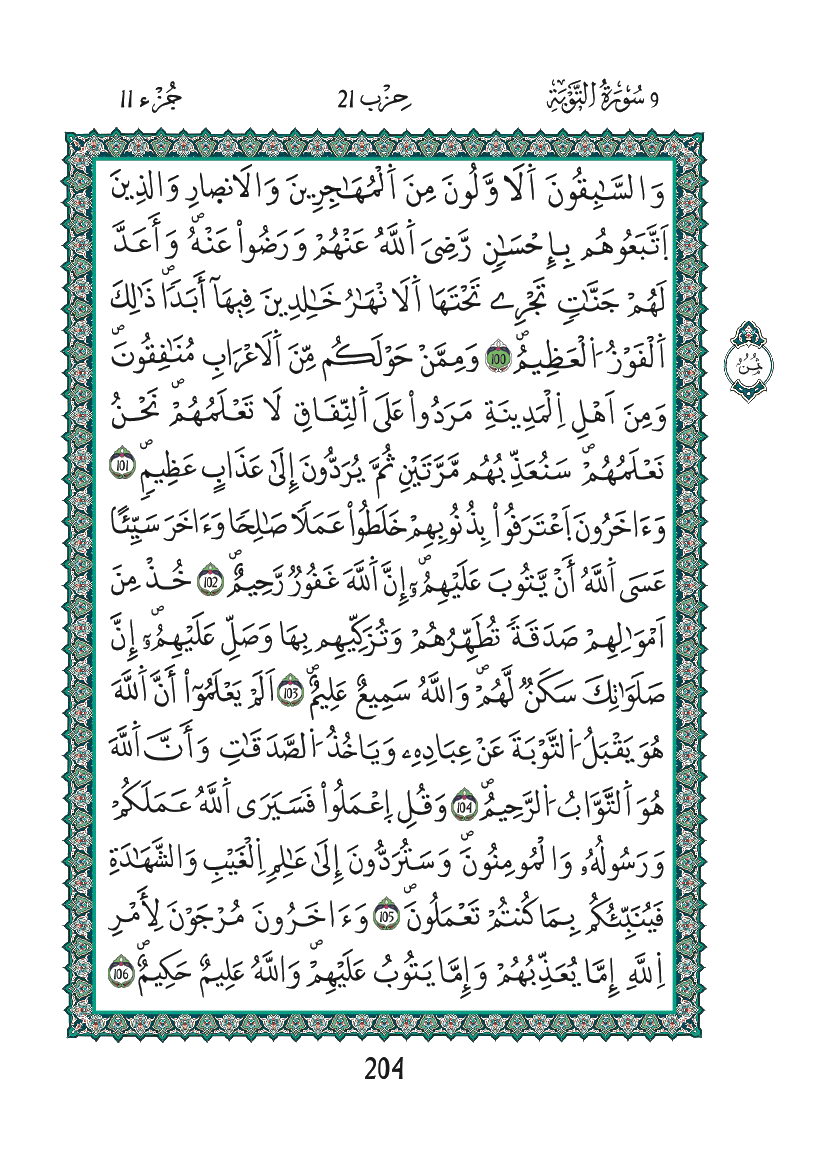 9 سُورَةُ التَّوْبَةِ
حِزْب 21
جُزْء 11
وَالسَّٰبِقُونَ اَ۬لَاوَّلُونَ مِنَ اَ۬لْمُهَٰجِرِينَ وَالَانصِارِ وَالذِينَ
اَ۪تَّبَعُوهُم بِإِحْسَٰنٖ رَّضِيَ اَ۬للَّهُ عَنْهُمْ وَرَضُواْ عَنْهُۖ وَأَعَدَّ
لَهُمْ جَنَّٰتٖ تَجْرِے تَحْتَهَا اَ۬لَانْهَٰرُ خَٰلِدِينَ فِيهَآ أَبَداٗۖ ذَٰلِكَ
اَ۬لْفَوْزُ اُ۬لْعَظِيمُۖ 100 وَمِمَّنْ حَوْلَكُم مِّنَ اَ۬لَاعْرَابِ مُنَٰفِقُونَۖ
وَمِنَ اَهْلِ اِ۬لْمَدِينَةِ مَرَدُواْ عَلَى اَ۬لنِّفَاقِ لَا تَعْلَمُهُمْۖ نَحْنُ
نَعْلَمُهُمْۖ سَنُعَذِّبُهُم مَّرَّتَيْنِ ثُمَّ يُرَدُّونَ إِلَىٰ عَذَابٍ عَظِيمٖۖ 101
وَءَاخَرُونَ اَ۪عْتَرَفُواْ بِذُنُوبِهِمْ خَلَطُواْ عَمَلاٗ صَٰلِحاٗ وَءَاخَرَ سَيِّئاً
عَسَى اَ۬للَّهُ أَنْ يَّتُوبَ عَلَيْهِمُۥٓۖ إِنَّ اَ۬للَّهَ غَفُورٞ رَّحِيمٌۖ 102 خُذْ مِنَ
اَمْوَٰلِهِمْ صَدَقَةٗ تُطَهِّرُهُمْ وَتُزَكِّيهِم بِهَا وَصَلِّ عَلَيْهِمُۥٓۖ إِنَّ
صَلَوَٰتِكَ سَكَنٞ لَّهُمْۖ وَاللَّهُ سَمِيعٌ عَلِيمٌۖ 103 اَلَمْ يَعْلَمُوٓاْ أَنَّ اَ۬للَّهَ
هُوَ يَقْبَلُ اُ۬لتَّوْبَةَ عَنْ عِبَادِهِۦ وَيَاخُذُ اُ۬لصَّدَقَٰتِ وَأَنَّ اَ۬للَّهَ
هُوَ اَ۬لتَّوَّابُ اُ۬لرَّحِيمُۖ 104 وَقُلِ اِ۪عْمَلُواْ فَسَيَرَى اَ۬للَّهُ عَمَلَكُمْ
وَرَسُولُهُۥ وَالْمُومِنُونَۖ وَسَتُرَدُّونَ إِلَىٰ عَٰلِمِ اِ۬لْغَيْبِ وَالشَّهَٰدَةِ
فَيُنَبِّئُكُم بِمَا كُنتُمْ تَعْمَلُونَۖ 105 وَءَاخَرُونَ مُرْجَوْنَ لِأَمْرِ
اِ۬للَّهِ إِمَّا يُعَذِّبُهُمْ وَإِمَّا يَتُوبُ عَلَيْهِمْۖ وَاللَّهُ عَلِيمٌ حَكِيمٌۖ 106
ثُمُن
204